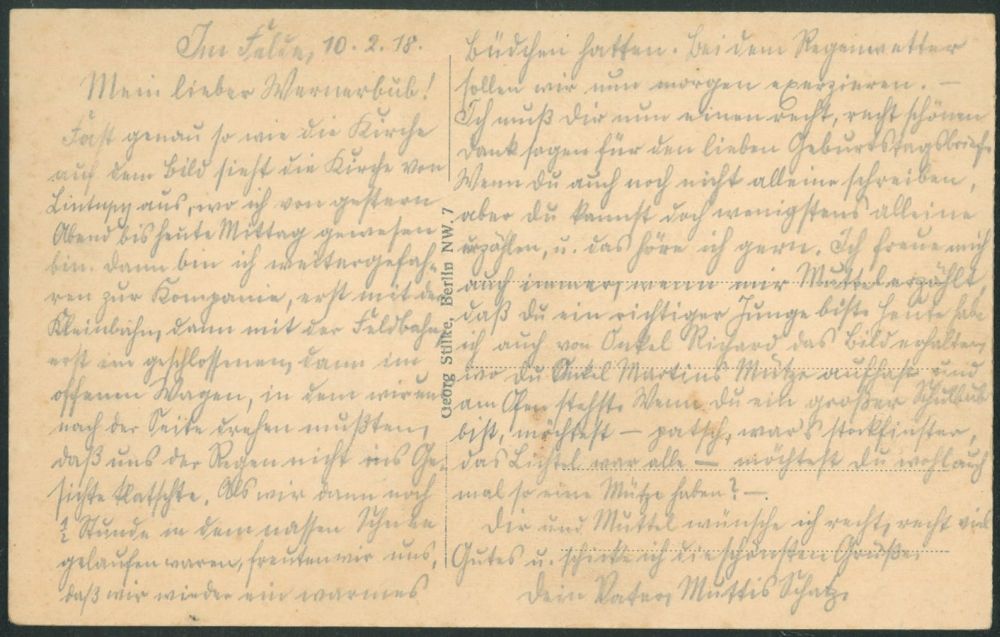 Im Felde, 10.2.18.
Mein lieber Wernerbub!
Fast genau so wie die Kirche
auf dem Bild sieht die Kirche von
Lintupy aus, wo ich von gestern
Abend bis heute Mittag gewesen
bin. Dann bin ich weitergefah-
ren zur Kompanie, erst mit der
Kleinbahn, dann mit der Feldbahn,
erst im geschlossenen, dann im
offenen Wagen, in dem wir uns
nach der Seite drehen mußten,
daß uns der Regen nicht ins Ge-
sichte klatschte. Als wir dann noch
Stunde in dem nassen Schnee
gelaufen waren, freuten wir uns,
daß wir wieder ein warmes
Büdchen hatten. Bei dem Regenwetter
sollen wir nun morgen exerzieren. —
Ich muß Dir nun einen recht, recht schönen
Dank sagen für den lieben Geburtstagsbrief.
Wenn Du auch noch nicht alleine schreiben,
aber Du kannst doch wenigstens alleine
erzählen, u. das höre ich gern. Ich freue mich
auch immer, wenn mir Muttel erzählt,
daß Du ein richtiger Junge bist. Heute habe
ich auch von Onkel Richard das Bild erhalten,
wo Du Onkel Martins Mütze aufhast und
am Ofen stehst. Wenn Du ein großer Schulbub
bist, möchtest — patsch, war's stockfinster,
das Lichtel war alle — möchtest Du wohl auch
mal so eine Mütze haben? —
Dir und Muttel wünsche ich recht, recht viel
Gutes u. schicke ich die schönsten Grüße.
Dein Vater, Muttis Schatz.
Georg Stilke, Berlin NW. 7